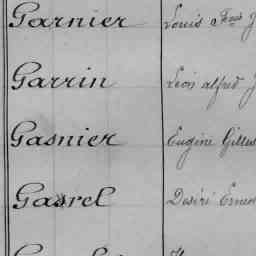 Garnier Louis Fcois J
Garrin Léon alfred J
Gasnier Eugène Gilles
Gasrel Désiré Ernes